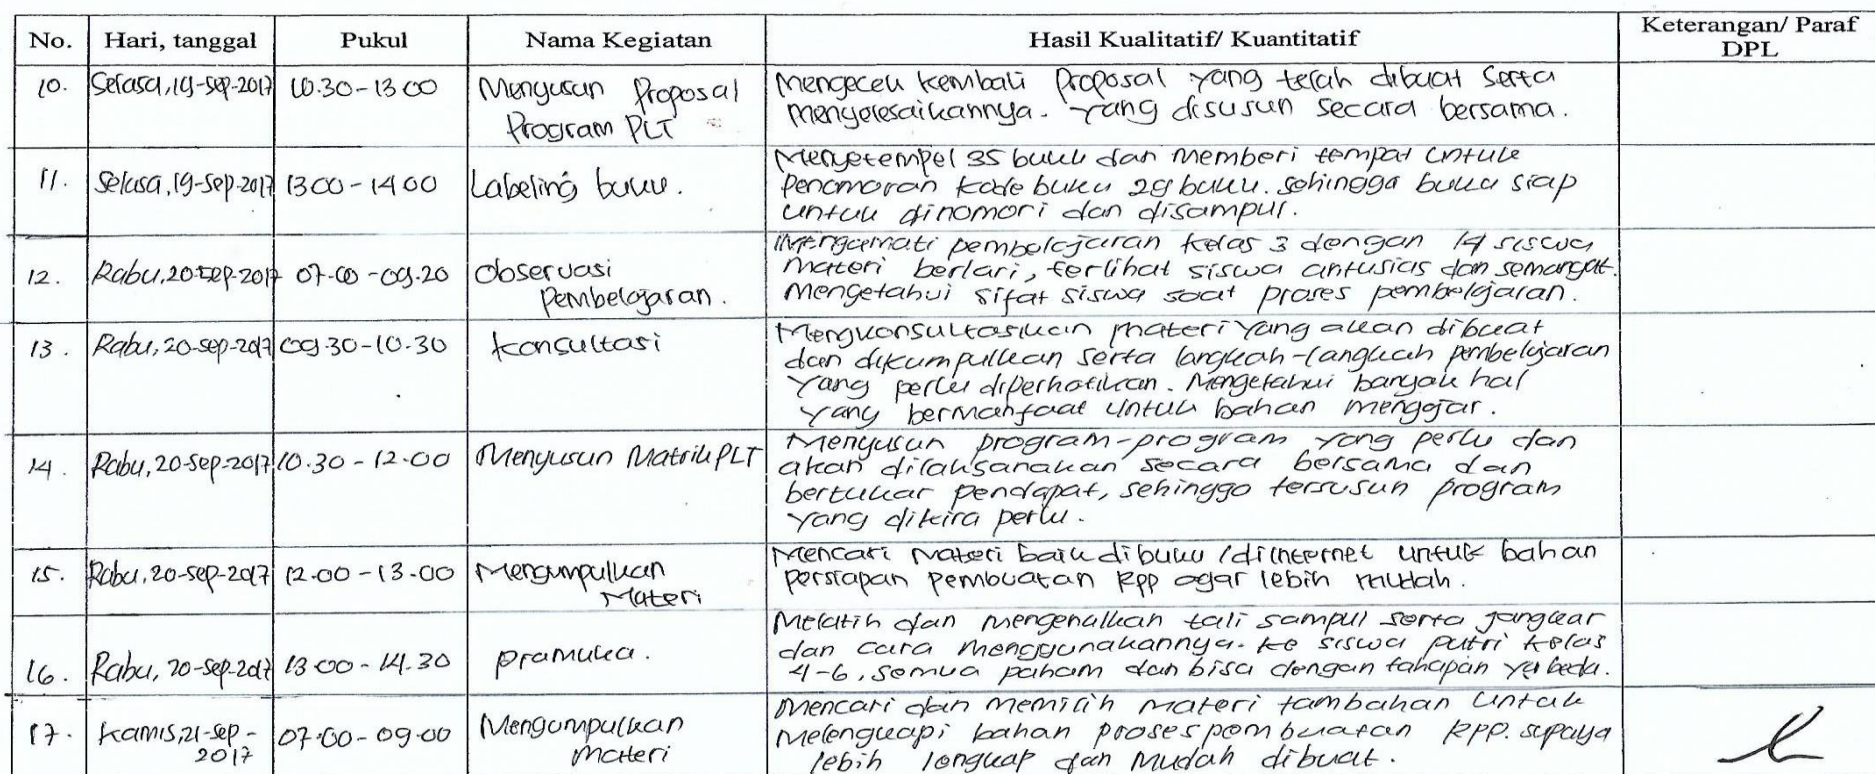 No. Hari, tanggal Pukul Nama Kegiatan Hasil Kualitatif/ Kuantitatif Keterangan/ Paraf DPL
10. Selasa, 19-Sep-2017 10.30-13.00 Menyusun Proposal Program PLT
Mengecek kembali Proposal yang telah dibuat serta
menyelesaikannya. yang disusun secara bersama.
11. Selasa, 19-Sep-2017 13.00-14.00 Labeling buku.
Menyetempel 35 buku dan memberi tempat untuk
penomoran kode buku 29 buku. sehingga buku siap
untuk dinomori dan disampul.
12. Rabu, 20-Sep-2017 07.00-09.20 Observasi Pembelajaran.
Mengamati pembelajaran kelas 3 dengan 14 siswa
materi berlari, terlihat siswa antusias dan semangat.
Mengetahui sifat siswa saat proses pembelajaran.
13. Rabu, 20-Sep-2017 09.30-10.30 Konsultasi
Mengkonsultasikan materi yang akan dibuat
dan dikumpulkan serta langkah-langkah pembelajaran
yang perlu diperhatikan. Mengetahui banyak hal
yang bermanfaat untuk bahan mengajar.
14. Rabu, 20-Sep-2017 10.30-12.00 Menyusun Matrik PLT
Menyusun program-program yang perlu dan
akan dilaksanakan secara bersama dan
bertukar pendapat, sehingga tersusun program
yang dikira perlu.
15. Rabu, 20-Sep-2017 12.00-13.00 Mengumpulkan Materi
Mencari Materi baik dibuku /diinternet untuk bahan
persiapan pembuatan RPP agar lebih mudah.
16. Rabu, 20-Sep-2017 13.00-14.30 Pramuka.
Melatih dan mengenalkan tali sampul serta jangkar
dan cara menggunakannya. ke siswa putri kelas
4-6, semua paham dan bisa dengan tahapan yg beda.
17. Kamis, 21-Sep-2017 07.00-09.00 Mengumpulkan Materi
Mencari dan memilih materi tambahan untuk
melengkapi bahan proses pembuatan RPP. supaya
lebih lengkap dan mudah dibuat.